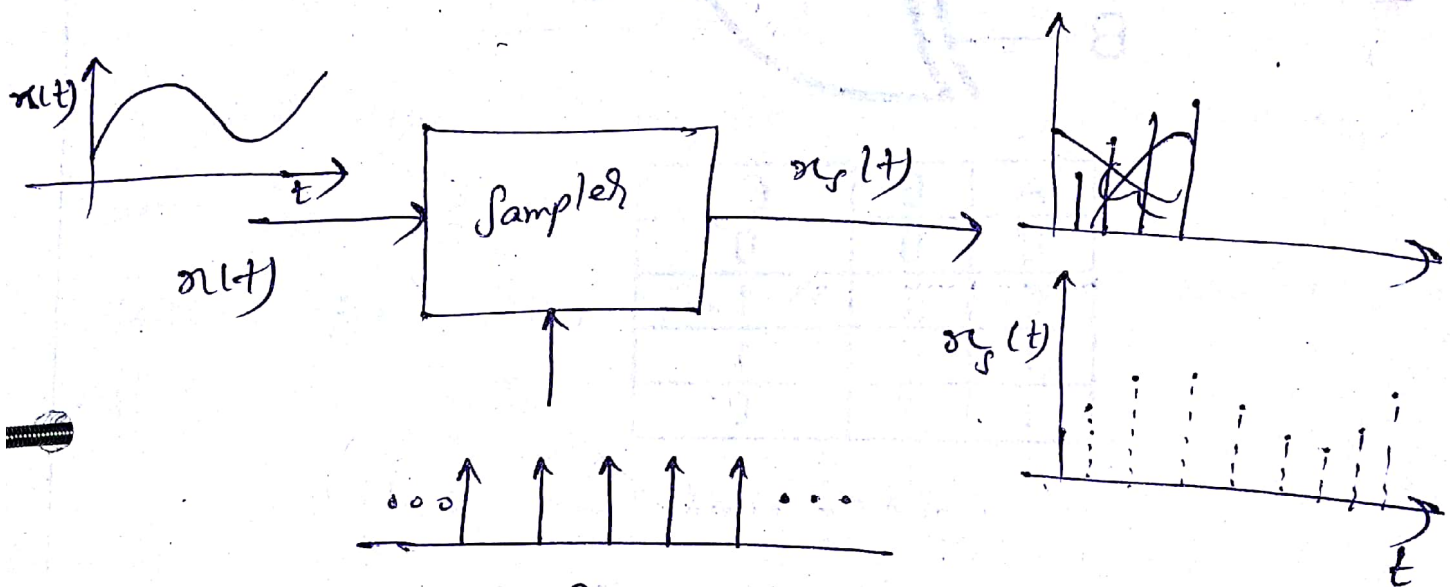 x(t)
t
x(t)
Sampler
x_s(t)
x_s(t)
t